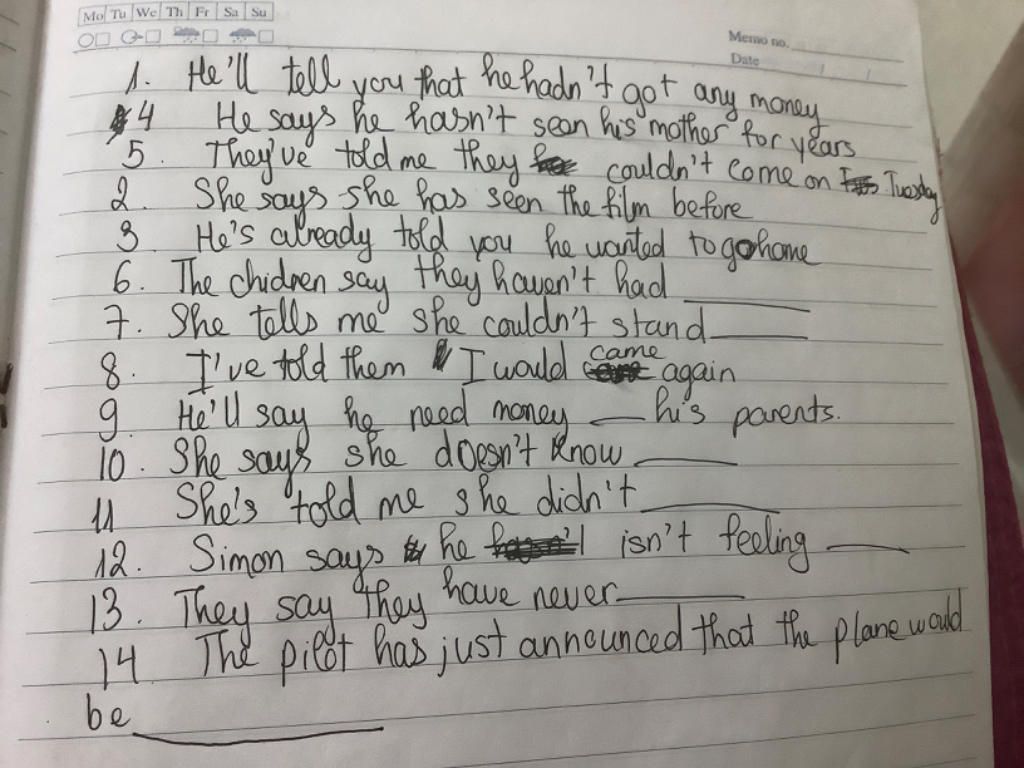 Mo Tu We Th Fr Sa Su
Memo no.
Date / /
1. He'll tell you that he hadn't got any money
4 He says he hasn't seen his mother for years
5. They've told me they couldn't come on Tuesday
2. She says she has seen the film before
3 He's already told you he wanted to go home
6. The chidren say they haven't had
7. She tells me she couldn't stand
8. I've told them I would came again
9. He'll say he need money — his parents.
10. She says she doesn't know
11 She's told me she didn't
12. Simon says he isn't feeling
13. They say they have never
14 The pilot has just announced that the plane would
be